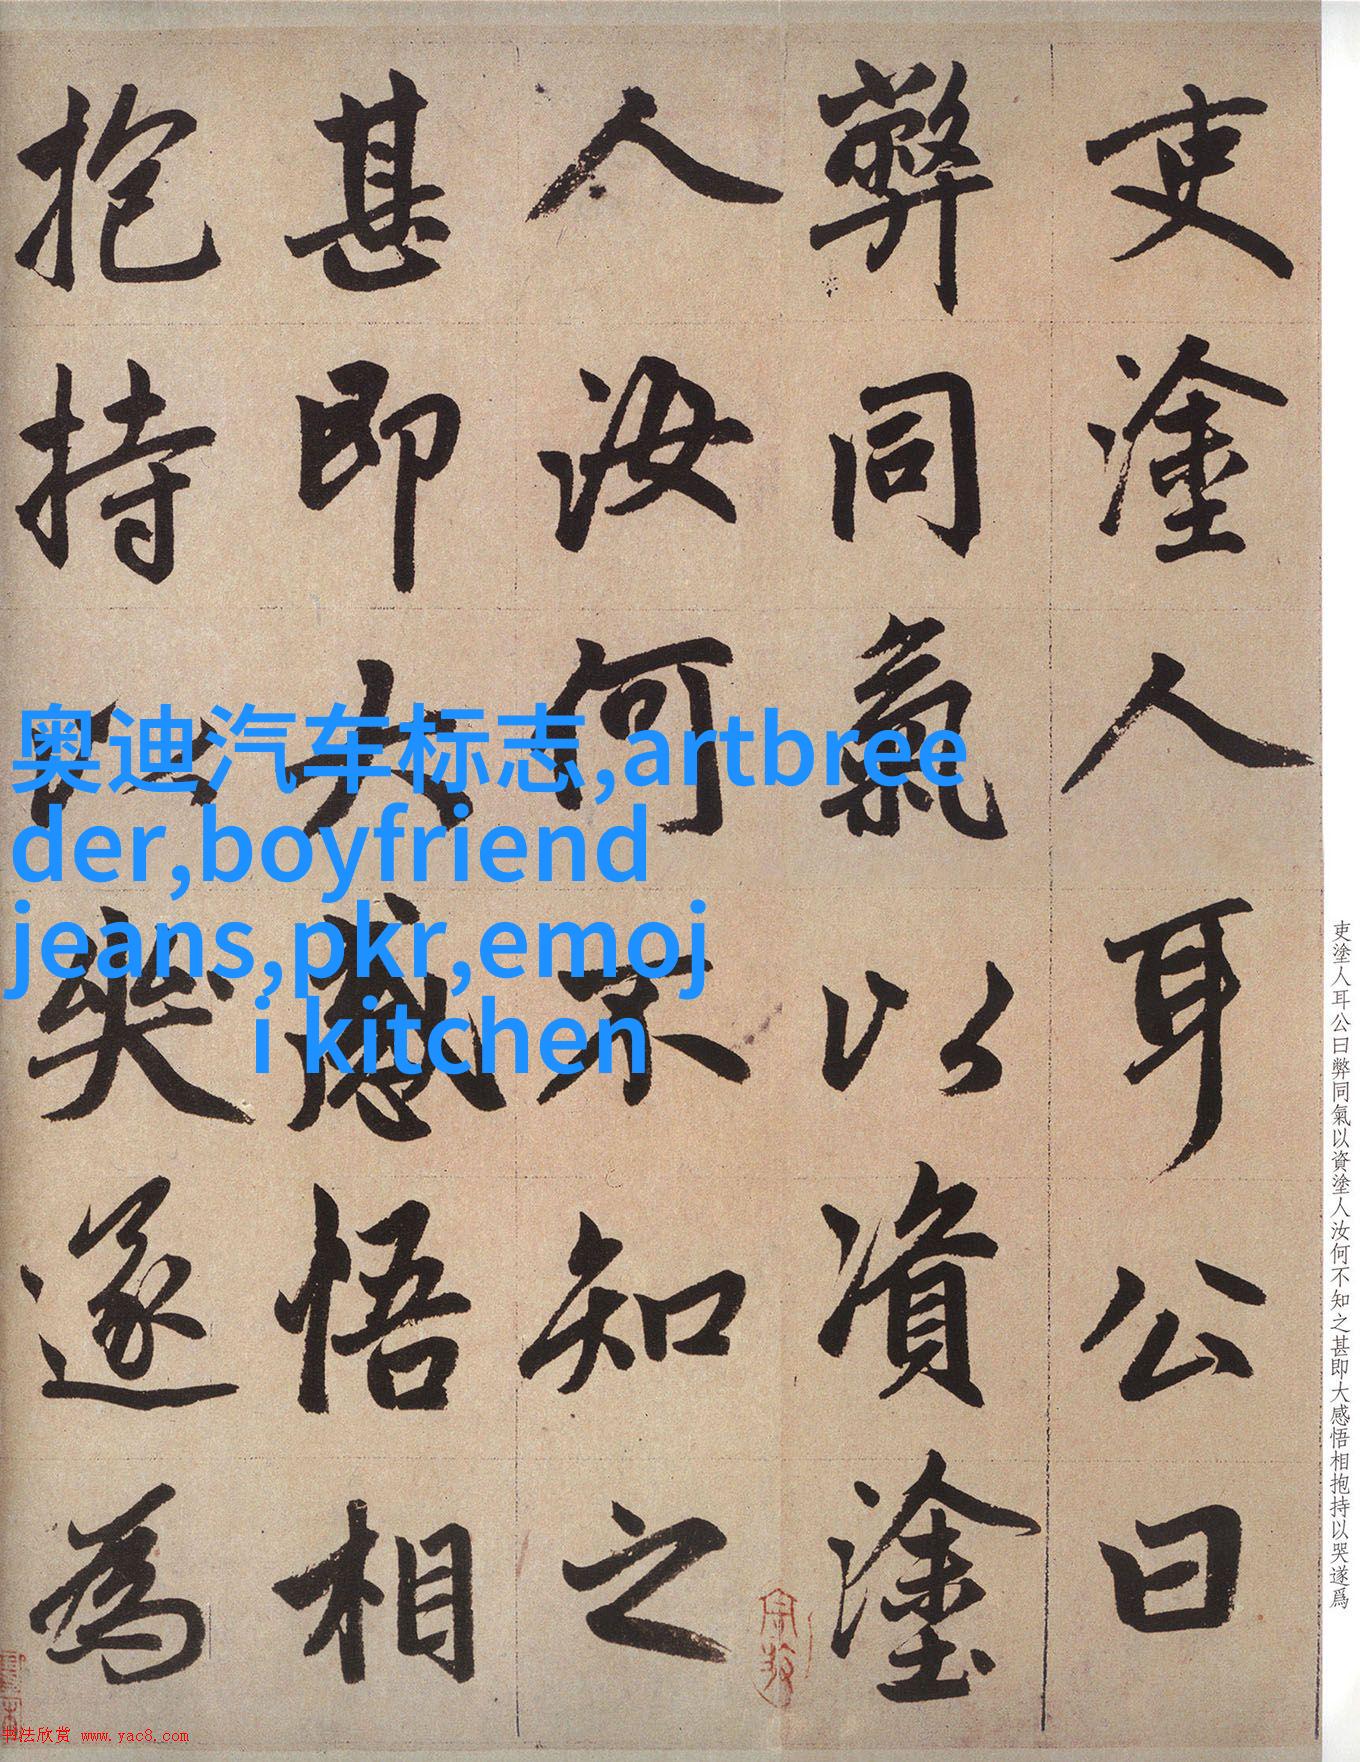 吏塗人耳公曰
弊同氣以資塗
人汝何不知之
甚即大感悟相
抱持以哭遂為
奥迪汽车标志,artbree
der,boyfriend
jeans,pkr,emoj
i kitchen
吏塗人耳公曰弊同氣以資塗人汝何不知之甚即大感悟相抱持以哭遂爲
书法欣赏 www.yac8.com